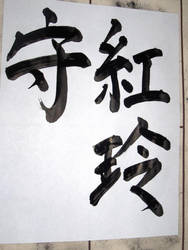 紅玲
守